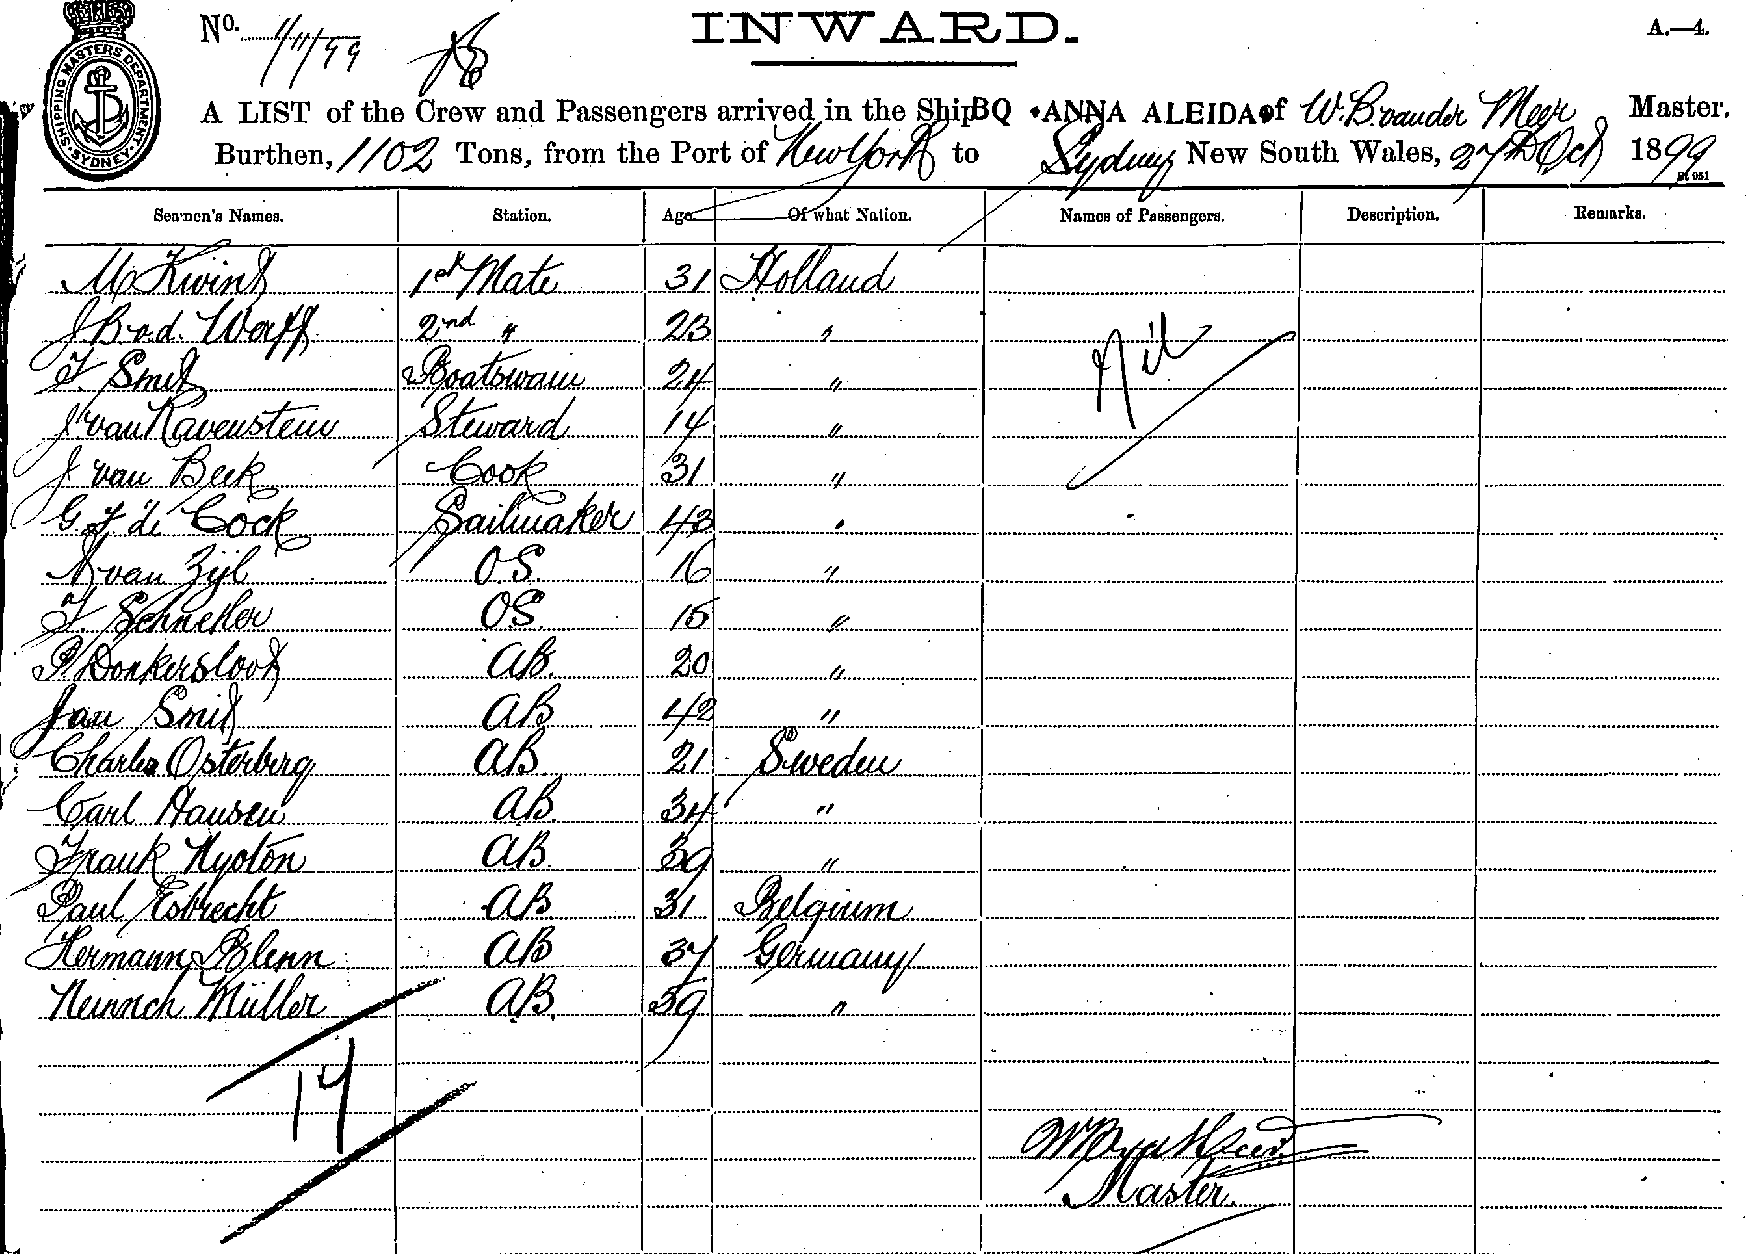 SHIPPING MASTERS DEPARTMENT · SYDNEY ·
No. 1/11/99
INWARD.
A.—4.
A LIST of the Crew and Passengers arrived in the Ship BQ ANNA ALEIDA of W. B. van der Meer Master,
Burthen, 1102 Tons, from the Port of New York to Sydney New South Wales, 27th Oct 1899
Seamen's Names. Station. Age Of what Nation. Names of Passengers. Description. Remarks.
M Kwint 1st Mate 31 Holland
J B v.d. Werff 2nd " 23 "
Nil
F. Smit Boatswain 24 "
J van Ravenstein Steward 14 "
J van Beek Cook 31 "
G. F de Cock Sailmaker 43 "
A van Zijl O.S. 16 "
F. Schneker OS. 15 "
P. Donkersloot AB. 20 "
Jan Smit AB 42 "
Charles Osterberg AB 21 Sweden
Carl Hansen AB 34 "
Frank Nyoton AB. 39 "
Paul Esbrecht AB 31 Belgium
Hermann Blenn AB 37 Germany
Heinrich Müller AB. 39 "
14
Master.